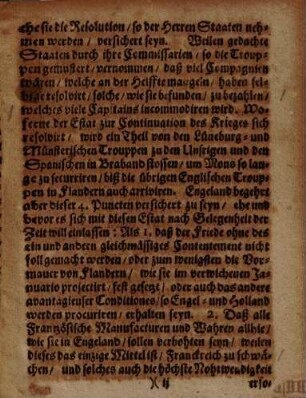 ehe sie die Resolution / so der Herren Staaten neh-
men werden / versichert seyn. Weilen gedachte
Staaten durch ihre Commissarien / so die Troup-
pen gemustert / vernommen / daß viel Compagnien
wären / welche an der Helffte mangeln / haben sel-
bige resolvirt / solche / wie sie befunden / zu bezahlen /
welches viele Capitains incommodiren wird. Wo-
ferne der Estat zur Continuation des Kriegs sich
resolvirt / wird ein Theil von den Lüneburg- und
Münsterischen Trouppen zu den Unsrigen und den
Spanischen in Braband stossen / um Mons so lan-
ge zu securiren / biß die übrigen Englischen Troup-
pen in Flandern auch arriviren. Engeland begehrt
aber dieser 4. Puncten versichert zu seyn / ehe und
bevor es sich mit diesen Estat nach Gelegenheit der
Zeit will einlassen: Als 1. daß der Friede ohne des
ein und andern gleichmässiges Contentement nicht
soll gemacht werden / oder zum wenigsten die Vor-
mauer von Flandern / wie sie im verwichenen Ja-
nuario projectirt / fest gesetzt / oder auch das andere
avantagieuser Conditiones / so Engel- und Holland
werden procuriren / erhalten seyn. 2. Daß alle
Französische Manufacturen und Wahren allhie /
wie sie in Engeland / sollen verbohten seyn / weilen
dieses das einzige Mittel ist / Franckreich zu schwä-
chen / und solches auch die höchste Nohtwendigkeit
)( ij erfo-